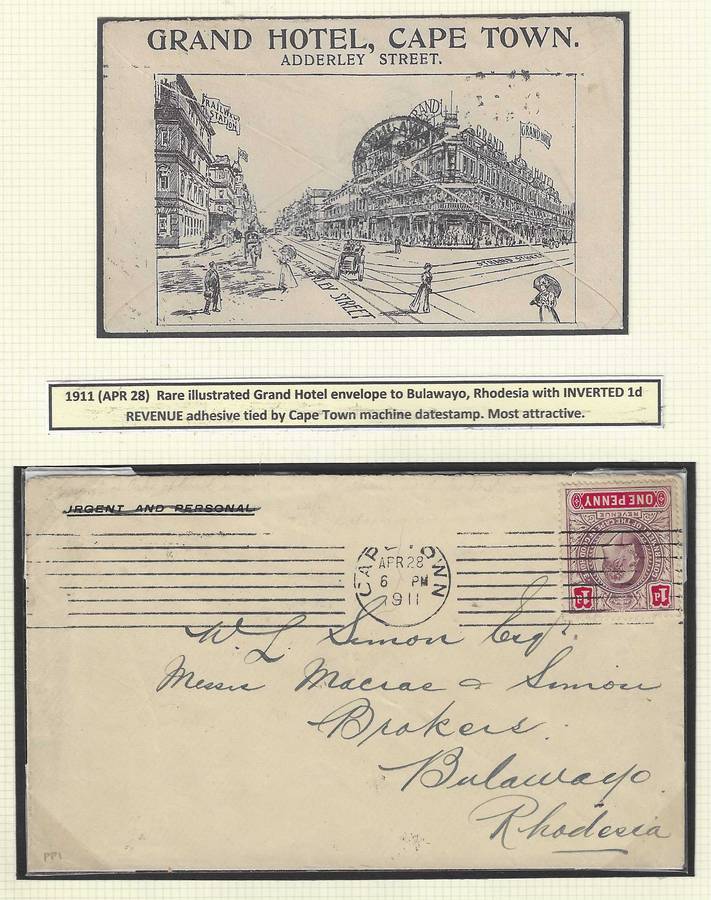 GRAND HOTEL, CAPE TOWN.
ADDERLEY STREET.
RAILWAY
STATION
GRAND
GRAND HOTEL
GRAND HOTEL
ADDERLEY STREET
STRAND STREET
1911 (APR 28) Rare illustrated Grand Hotel envelope to Bulawayo, Rhodesia with INVERTED 1d
REVENUE adhesive tied by Cape Town machine datestamp. Most attractive.
URGENT AND PERSONAL
CAPE TOWN
APR 28
6 PM
1911
ONE PENNY
REVENUE
1d 1d
W. L. Simon Esqr.
Messrs Macrae & Simon
Brokers.
Bulawayo.
Rhodesia
PP1